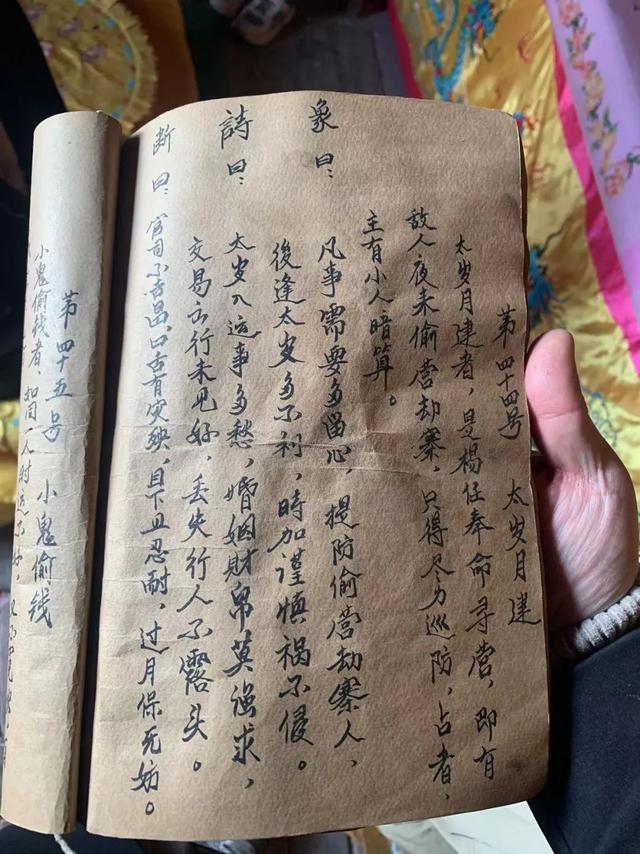 第四十四号 太岁月建
太岁月建者，是杨任奉命寻营，即有
敌人夜来偷营劫寨，只得尽力巡防，占者，
主有小人暗算。
象曰：凡事需要多留心，提防偷营劫寨人，
後逢太岁多不利，時加謹慎祸不侵。
詩曰：太岁入运事多愁，婚姻財帛莫强求，
交易出行未见好，丢失行人不露头。
断曰：官司不吉昌，口舌有灾殃，目下且忍耐，过月保无妨。
第四十五号 小鬼偷钱
小鬼偷钱者，如同一人时运不好，